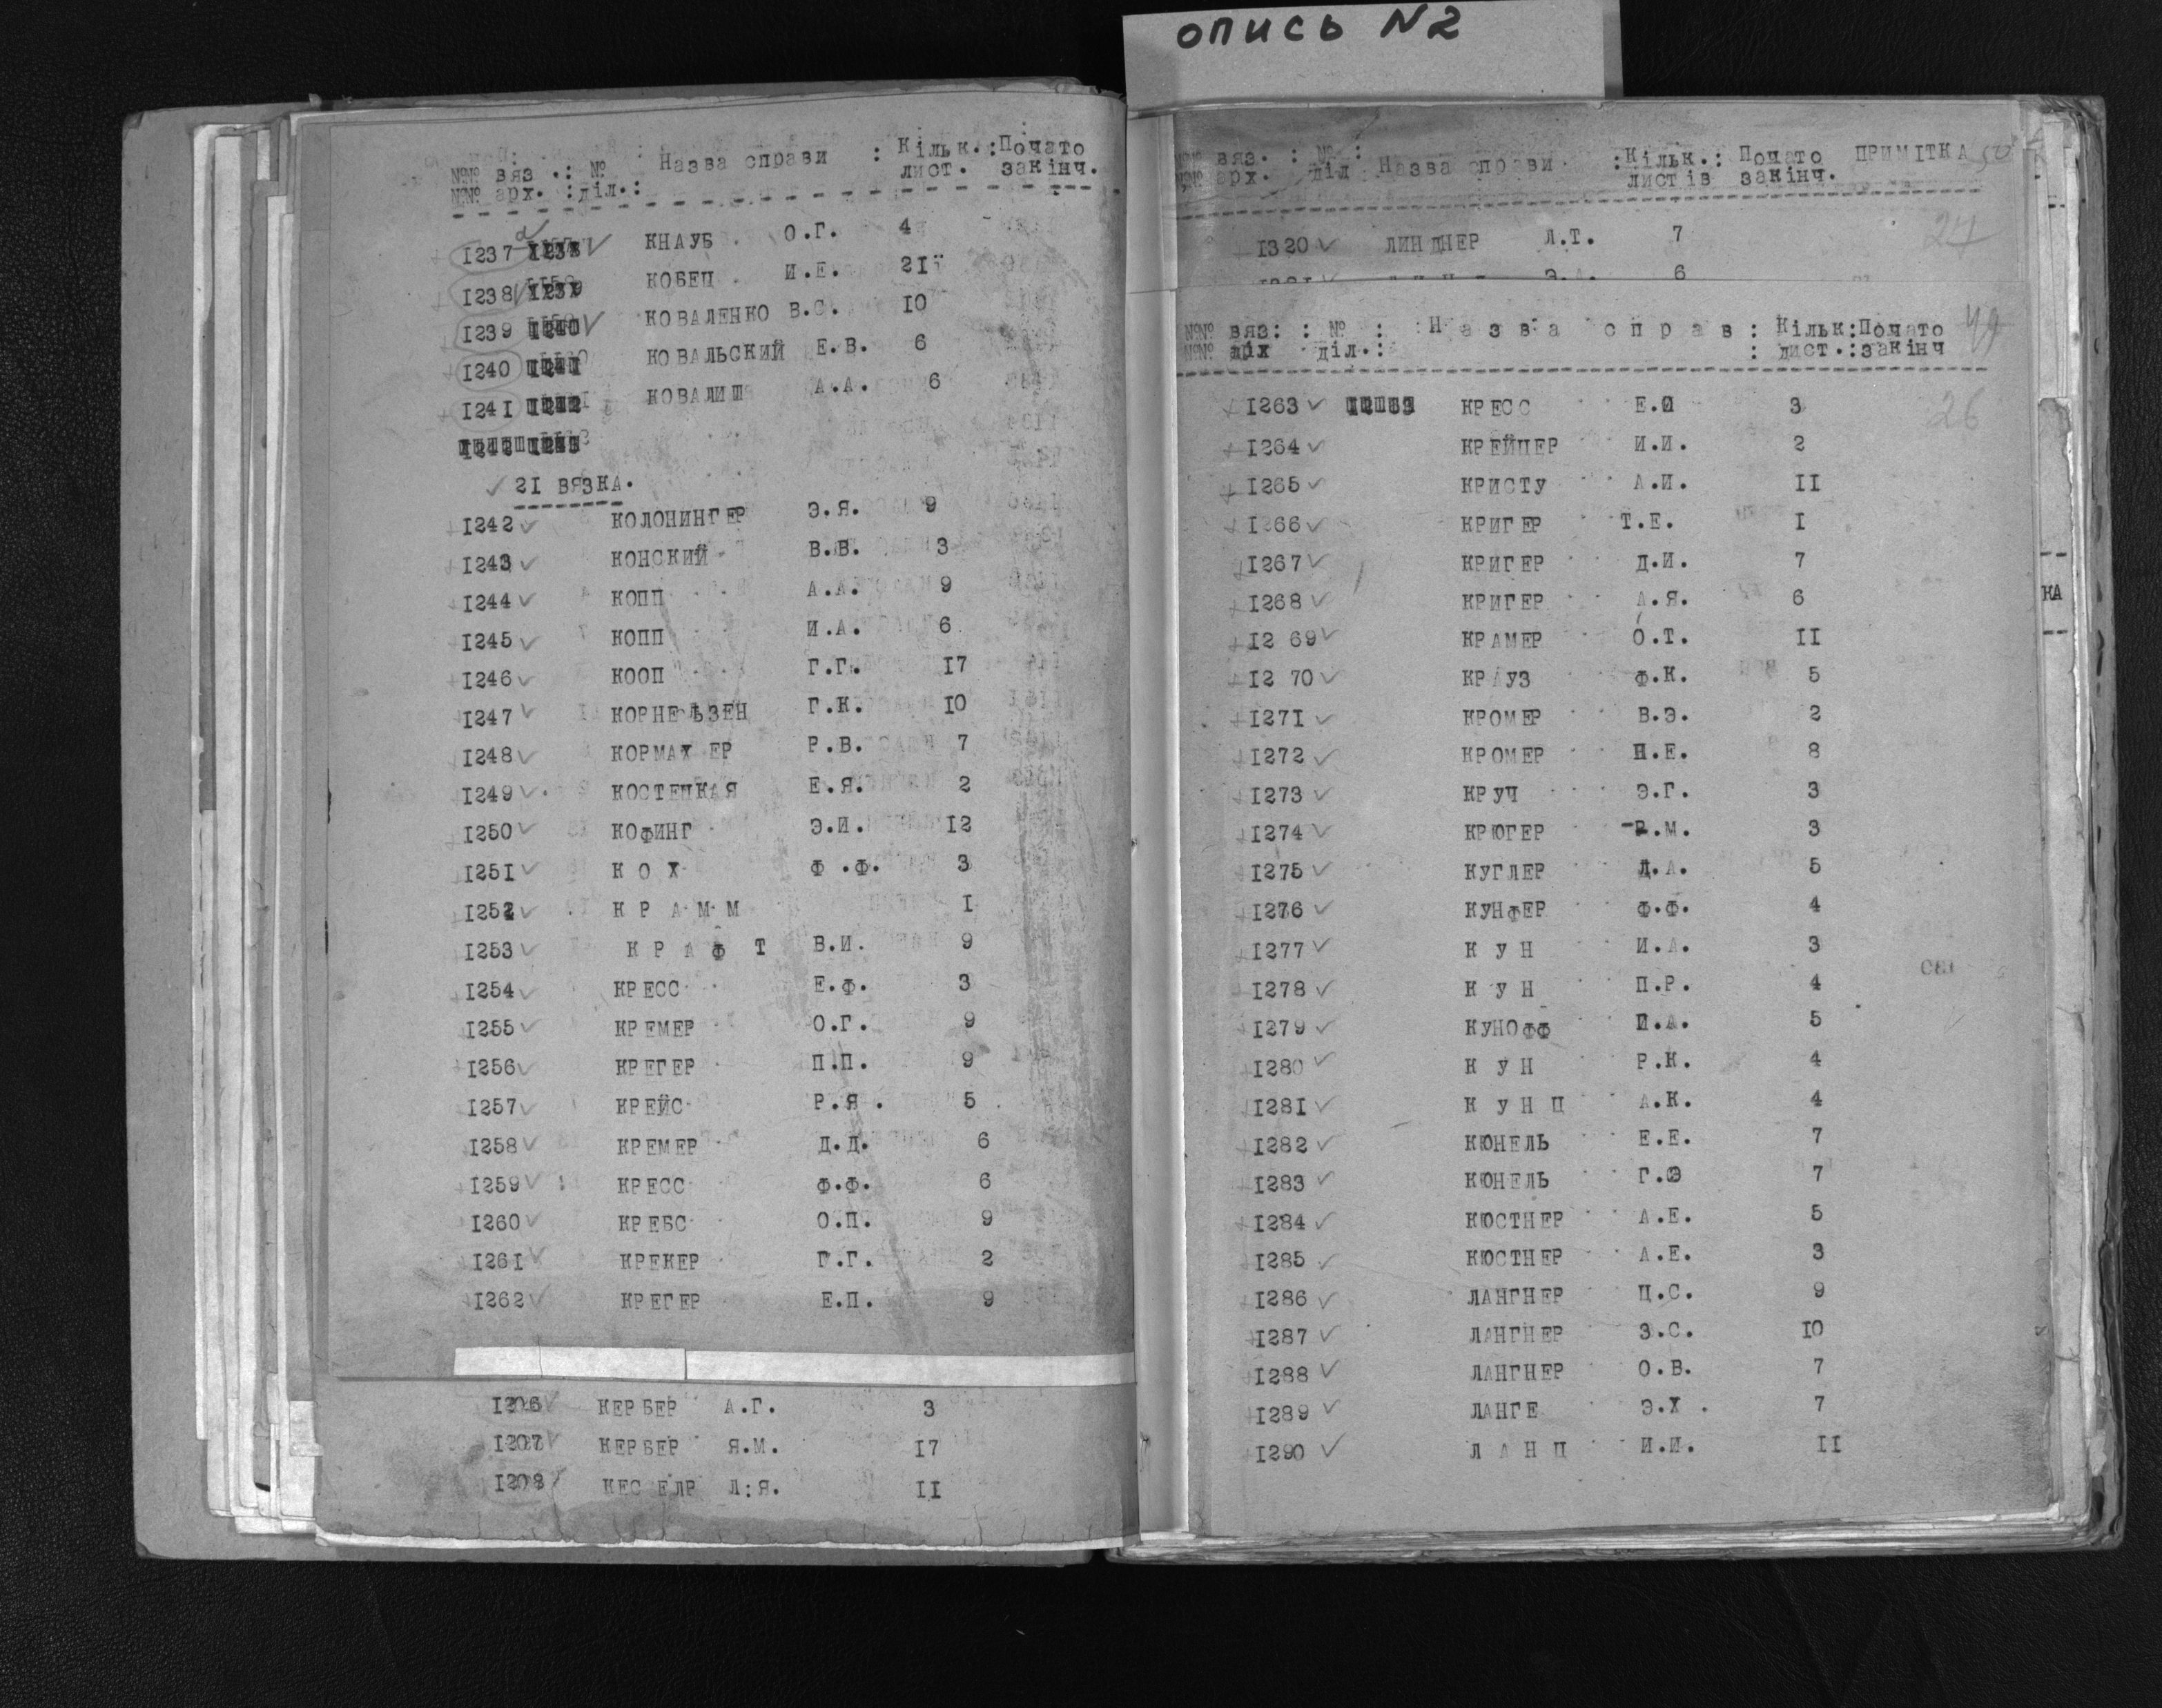 опись N2
№№ вяз .: № : Назва справи : Кільк.:Почато
№№ арх. :діл.: лист. закінч.
1237 а КНАУБ О.Г. 4
1238 КОБЕЦ И.Е. 21
1239 КОВАЛЕНКО В.С. 10
1240 КОВАЛЬСКИЙ Е.В. 6
1241 КОВАЛИШ А.А. 6
21 ВЯЗКА.
1242 КОЛОНИНГЕР Э.Я. 9
1243 КОНСКИЙ В.В. 3
1244 КОПП А.А. 9
1245 КОПП И.А. 6
1246 КООП Г.Г. 17
1247 КОРНЕЛЬЗЕН Г.К. 10
1248 КОРМАХ ЕР Р.В. 7
1249 КОСТЕЦКАЯ Е.Я. 2
1250 КОФИНГ Э.И. 12
1251 К О Х Ф .Ф. 3
1252 К Р А М М 1
1253 К Р А Ф Т В.И. 9
1254 КРЕСС Е.Ф. 3
1255 КРЕМЕР О.Г. 9
1256 КРЕГЕР П.П. 9
1257 КРЕЙС Р.Я . 5
1258 КРЕМЕР Д.Д. 6
1259 КРЕСС Ф.Ф. 6
1260 КРЕБС О.П. 9
1261 КРЕКЕР Г.Г. 2
1262 КРЕГЕР Е.П. 9
1206 КЕРБЕР А.Г. 3
1207 КЕРБЕР Я.М. 17
1208 КЕС ЕЛР Л:Я. 11
№№ вяз. : № : Назва справи :Кільк.: Почато ПРИМІТКА 50
№№ арх. діл листів закінч.
27
1320 ЛИНДНЕР Л.Т. 7
Э.А. 6
№№ вяз: : № : :Н а з в а с п р а в : Кільк:Почато 49
№№ діл.: : лист.:закінч
26
1263 КРЕСС Е.И 3
1264 КРЕЙЦЕР И.И. 2
1265 КРИСТУ А.И. 11
1266 КРИГЕР Т.Е. 1
1267 КРИГЕР Д.И. 7
1268 КРИГЕР А.Я. 6
12 69 КРАМЕР О.Т. 11
12 70 КРАУЗ Ф.К. 5
1271 КРОМЕР В.Э. 2
1272 КРОМЕР Н.Е. 8
1273 КРУЧ Э.Г. 3
1274 КРЮГЕР Р.М. 3
1275 КУГЛЕР Д.А. 5
1276 КУНФЕР Ф.Ф. 4
1277 К У Н И.А. 3
1278 К У Н П.Р. 4
1279 КУНОФФ И.А. 5
1280 К У Н Р.К. 4
1281 К У Н Ц А.К. 4
1282 КЮНЕЛЬ Е.Е. 7
1283 КЮНЕЛЬ Г.Э 7
1284 КЮСТНЕР А.Е. 5
1285 КЮСТНЕР А.Е. 3
1286 ЛАНГНЕР Ц.С. 9
1287 ЛАНГНЕР З.С. 10
1288 ЛАНГНЕР О.В. 7
1289 ЛАНГЕ Э.Х . 7
1290 Л А Н Ц И.И. 11
КА